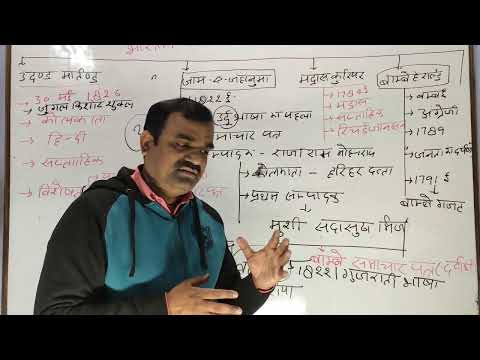 उदण्ड मार्तण्ड
30 मई 1826
जुगल किशोर शुक्ल
कोलकाता
हिन्दी
साप्ताहिक
जाम-ए-जहाँनुमा
1822 ई
उर्दू भाषा का पहला
माचार पत्र
म्पादक - राजा राम मोहनराय
कोलकाता - हरिहर दत्ता
प्रथम सम्पादक
मुंशी सदासुख मिर्जा
मद्रास कुरियर
1785 ई
मद्रास
साप्ताहिक
रिचर्ड जॉनसन
बाम्बे हेराल्ड
बम्बई
अंग्रेजी
1789
1791 ई
बाम्बे गजट
बाम्बे समाचार पत्र
1822 गुजराती भाषा